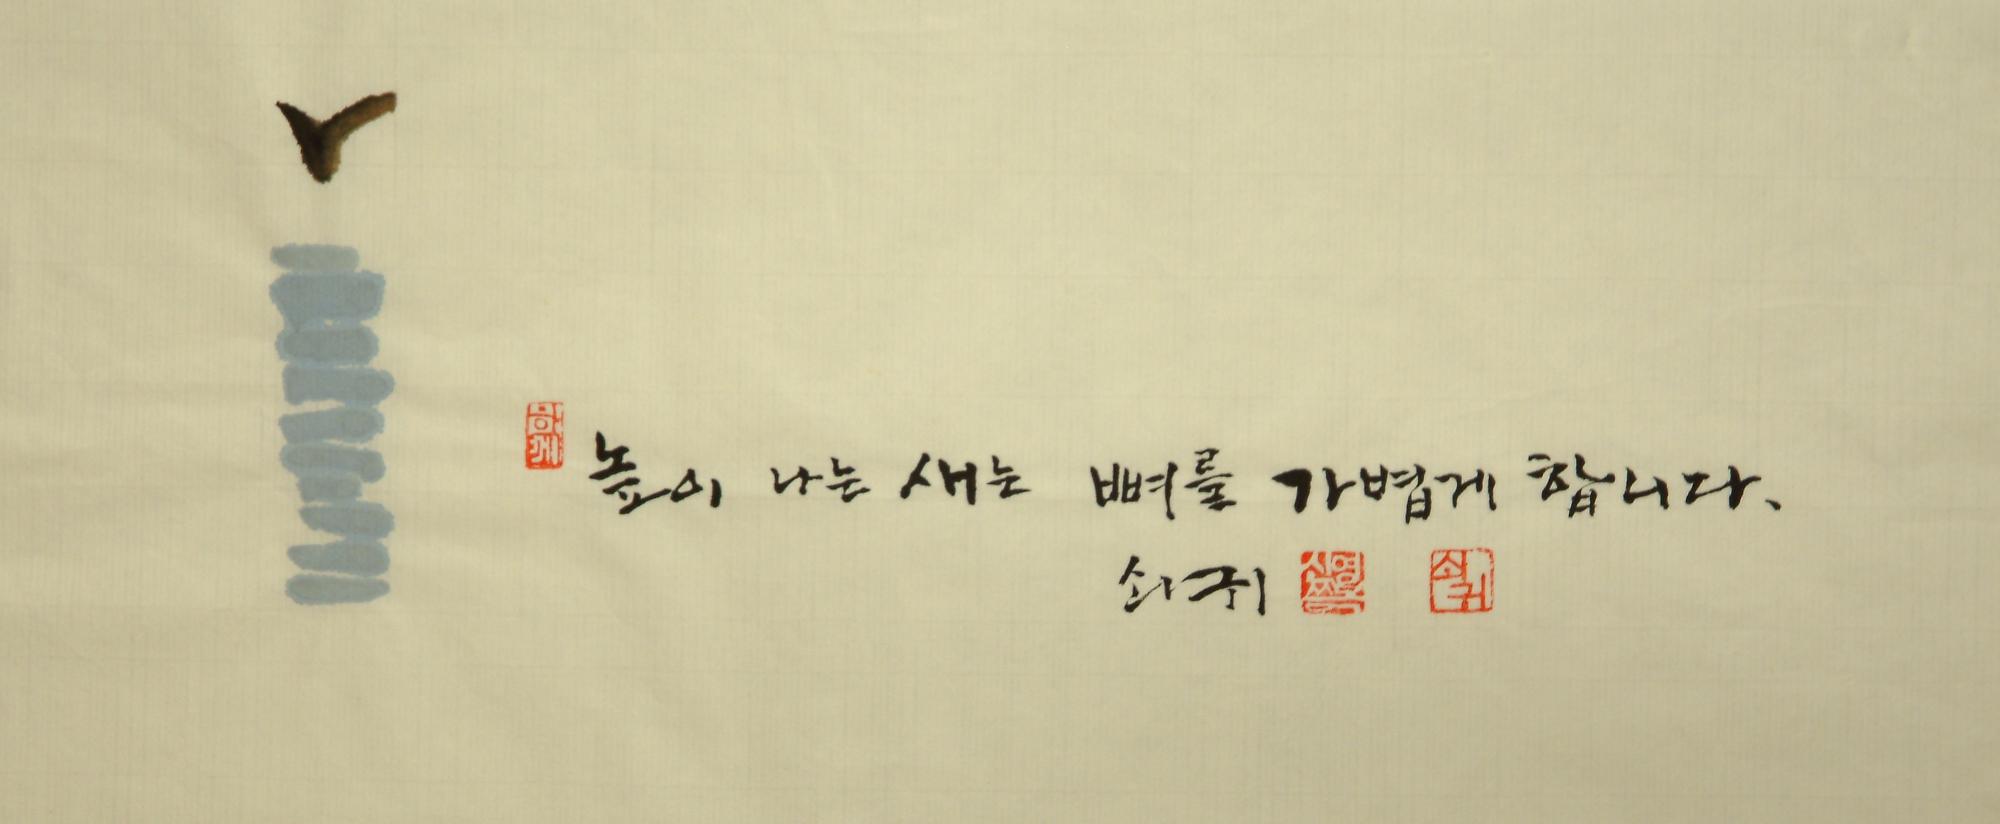 함께
높이 나는 새는 뼈를 가볍게 합니다.
쇠귀
쇠귀